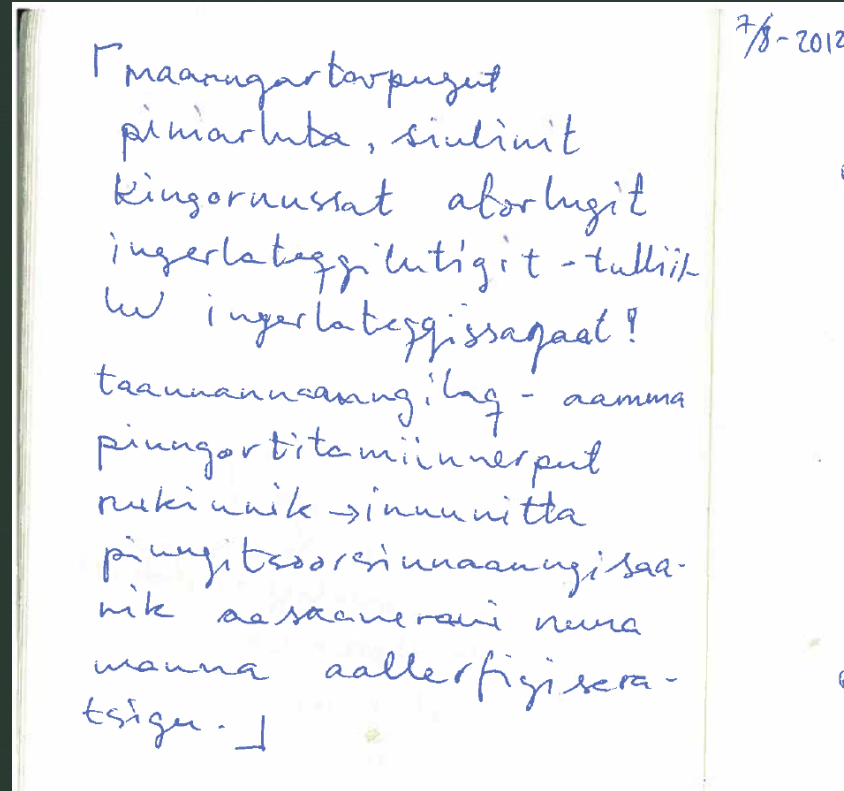 7/8-2012
⌈maanngartarpugut
piniarluta, siulinit
kingornussat atorlugit
ingerlateqqilutigit - tulliit-
lu ingerlateqqissapaat!
taannannaanngilaq - aamma
pinngortitamiinnerput
nukinnik →inuunitta
pinngitsoorsinnaanngisaa-
nik aasaanerani nuna
manna aallerfigisera-
tsigu.⌋